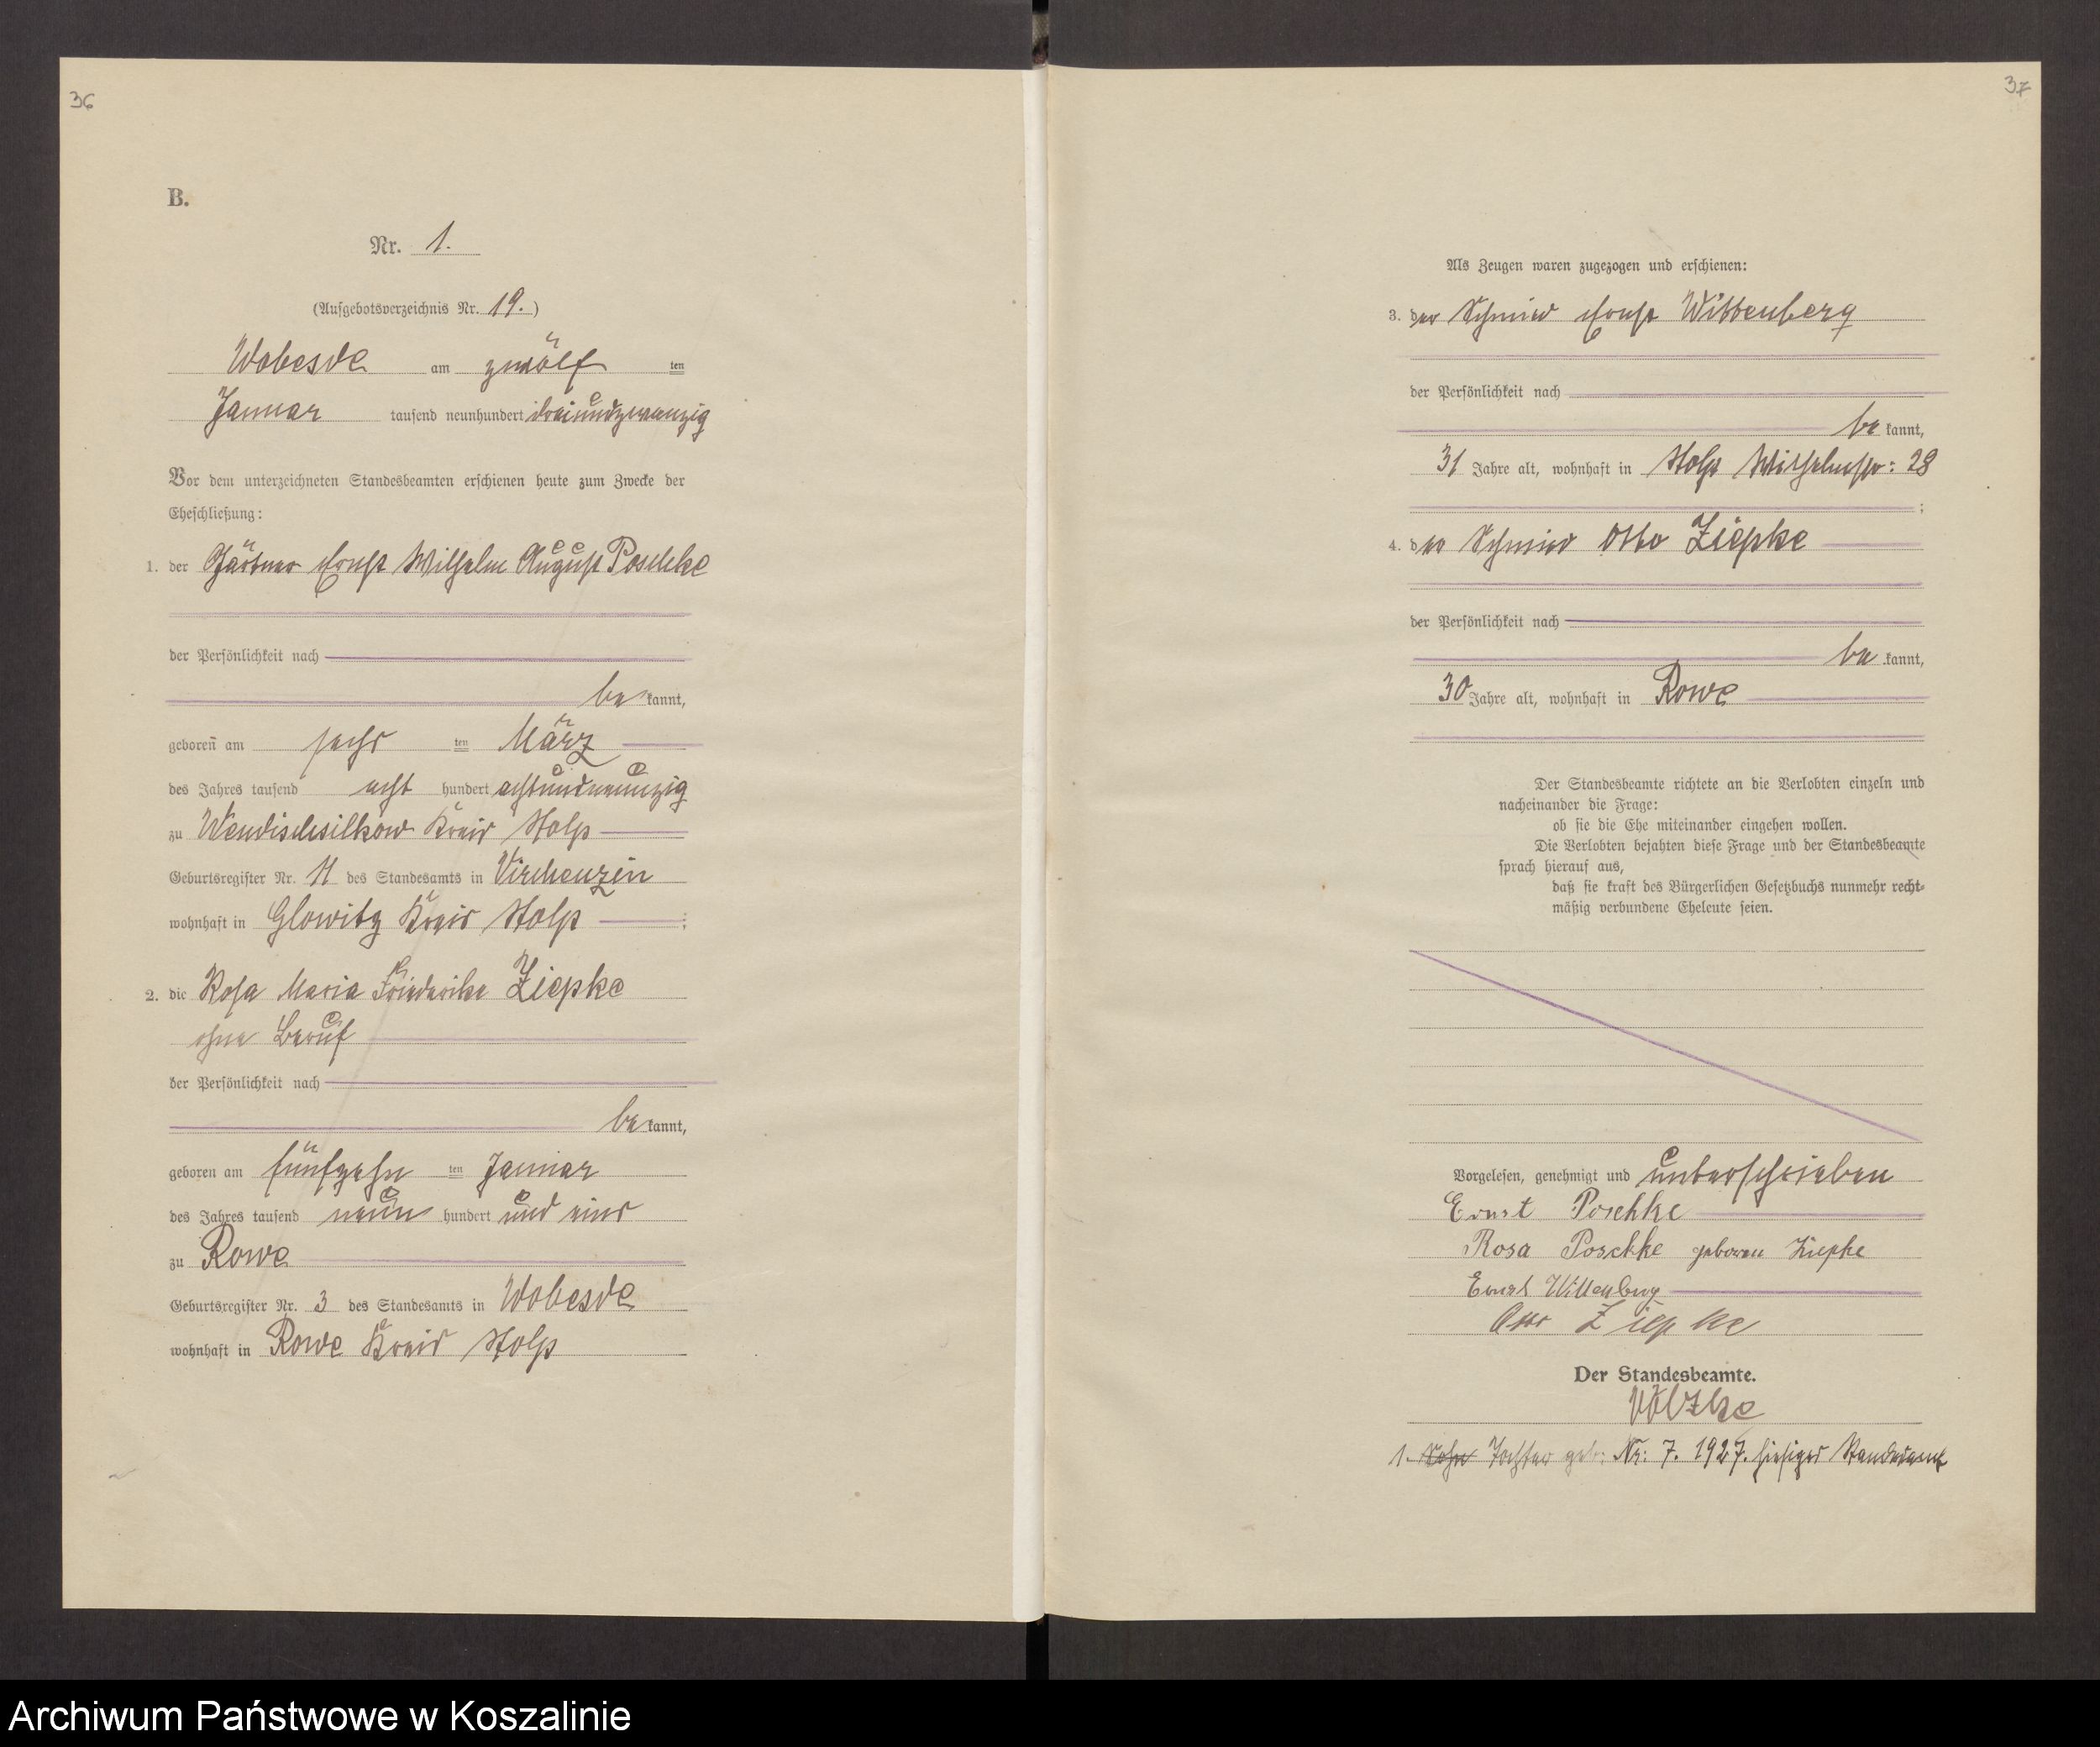 36
B.
Nr. 1.
(Aufgebotsverzeichnis Nr. 19.)
Wobesde am zwölf ten
Januar tausend neunhundert dreiundzwanzig
Vor dem unterzeichneten Standesbeamten erschienen heute zum Zwecke der
Eheschließung:
1. der Gärtner Ernst Wilhelm August Poschke
der Persönlichkeit nach
be kannt,
geboren am sechs ten März
des Jahres tausend acht hundert achtundneunzig
zu Wendischsilkow Kreis Stolp
Geburtsregister Nr. 11 des Standesamts in Virchenzin
wohnhaft in Glowitz Kreis Stolp ;
2. die Rosa Maria Friederike Ziepke
ohne Beruf
der Persönlichkeit nach
be kannt,
geboren am fünfzehn ten Januar
des Jahres tausend neun hundert und eins
zu Rowe
Geburtsregister Nr. 3 des Standesamts in Wobesde
wohnhaft in Rowe Kreis Stolp
37
Als Zeugen waren zugezogen und erschienen:
3. der Schmied Ernst Wittenberg
der Persönlichkeit nach
be kannt,
31 Jahre alt, wohnhaft in Stolp Wilhelmstr: 28
;
4. der Schmied Otto Ziepke
der Persönlichkeit nach
be kannt,
30 Jahre alt, wohnhaft in Rowe
Der Standesbeamte richtete an die Verlobten einzeln und
nacheinander die Frage:
ob sie die Ehe miteinander eingehen wollen.
Die Verlobten bejahten diese Frage und der Standesbeamte
sprach hierauf aus,
daß sie kraft des Bürgerlichen Gesetzbuchs nunmehr recht-
mäßig verbundene Eheleute seien.
Vorgelesen, genehmigt und unterschrieben
Ernst Poschke
Rosa Poschke geboren Ziepke
Ernst Wittenberg
Otto Ziepke
Der Standesbeamte.
Völzke
1. Sohn Tochter geb: Nr: 7. 1927. hiesiges Standesamt
Archiwum Państwowe w Koszalinie